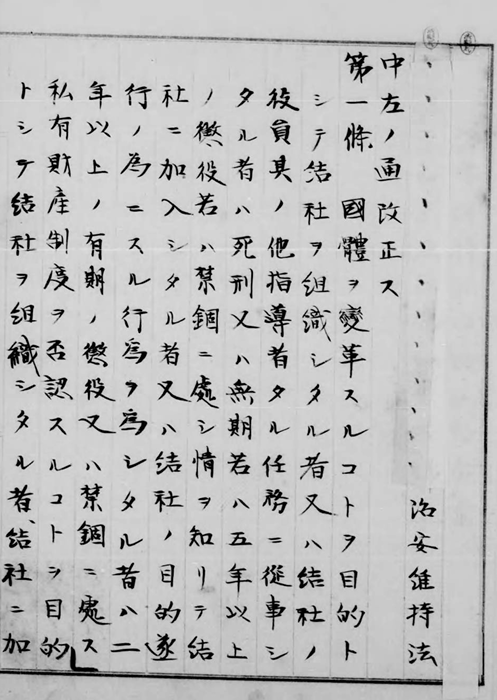 治安維持法
中左ノ通改正ス
第一條 國體ヲ變革スルコトヲ目的ト
シテ結社ヲ組織シタル者又ハ結社ノ
役員其ノ他指導者タル任務ニ從事シ
タル者ハ死刑又ハ無期若ハ五年以上
ノ懲役若ハ禁錮ニ處シ情ヲ知リテ結
社ニ加入シタル者又ハ結社ノ目的遂
行ノ為ニスル行為ヲ為シタル者ハ二
年以上ノ有期ノ懲役又ハ禁錮ニ處ス
私有財産制度ヲ否認スルコトヲ目的
トシテ結社ヲ組織シタル者、結社ニ加